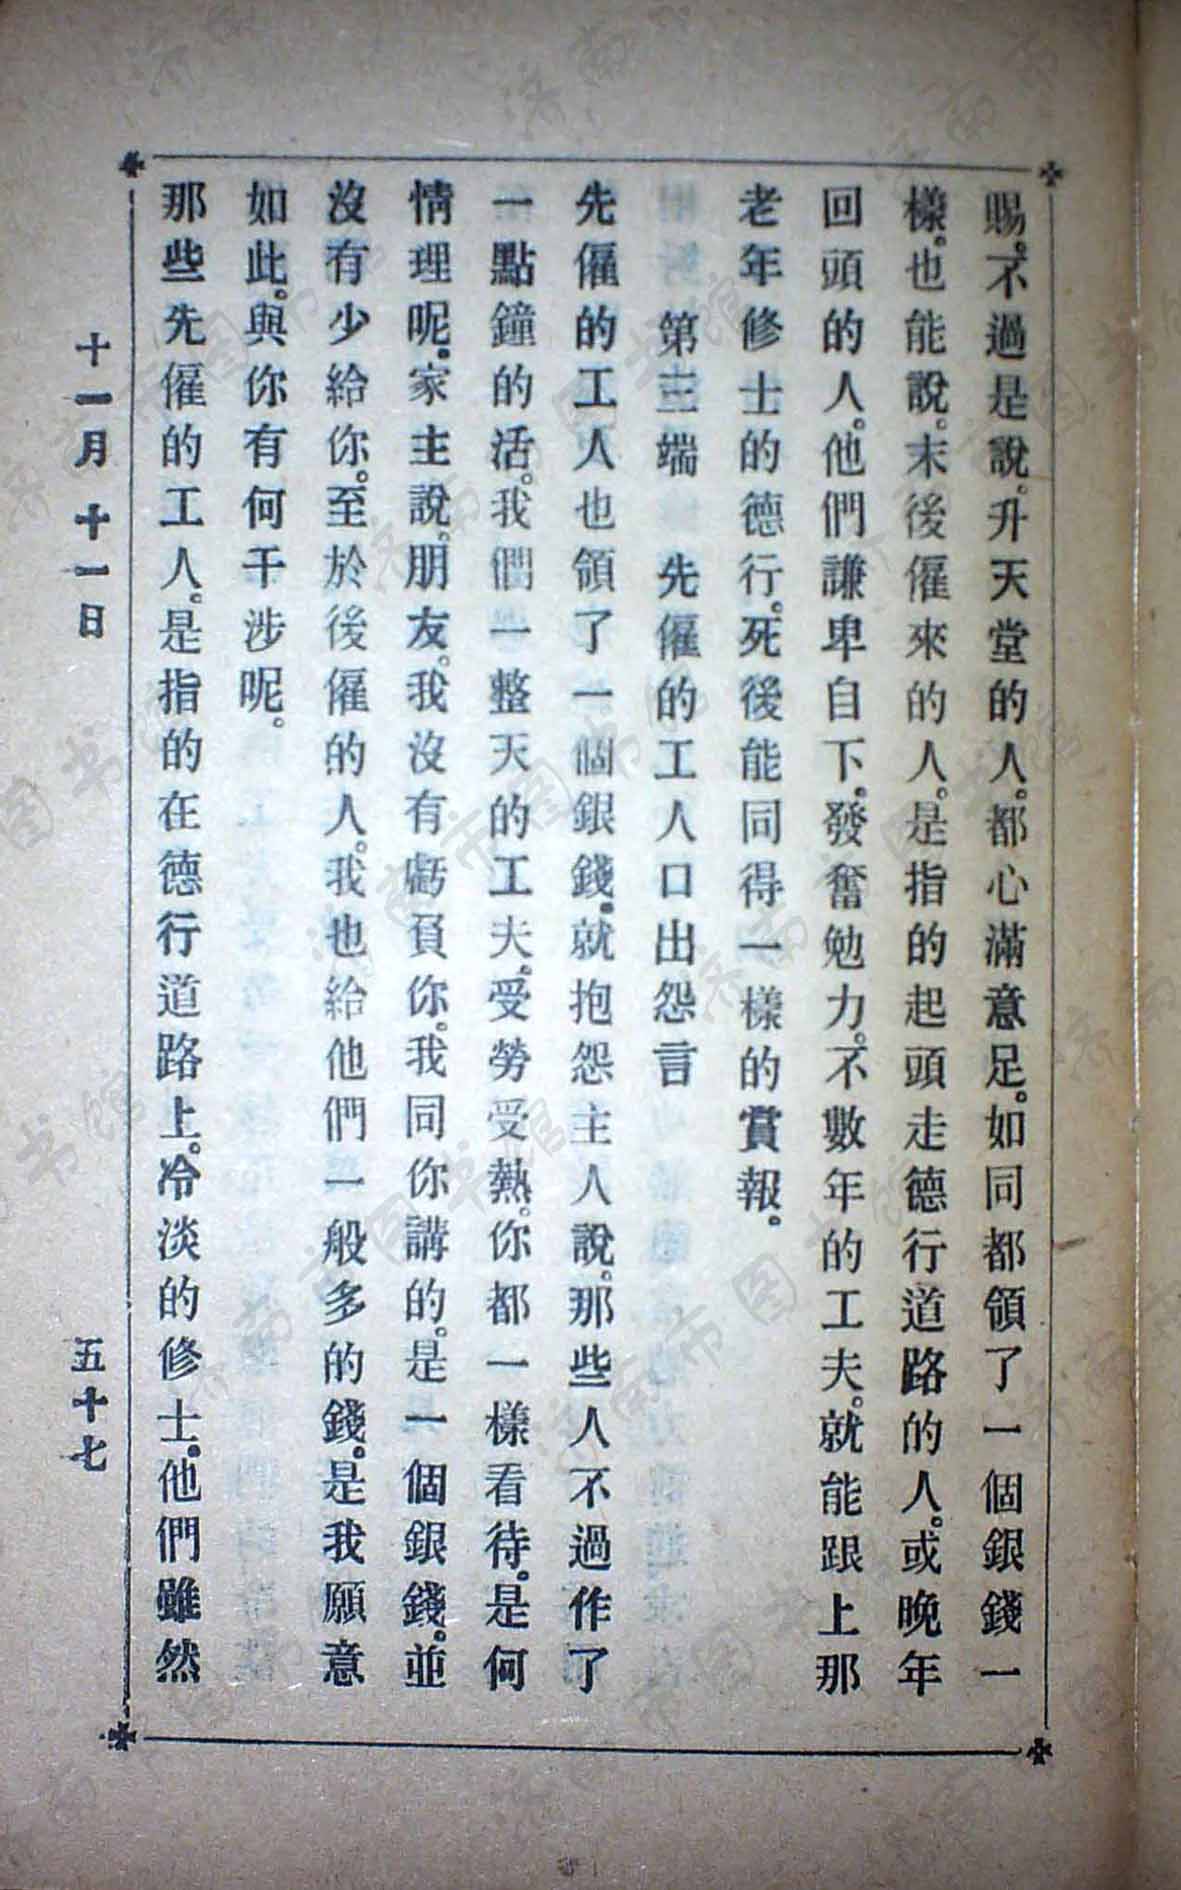 賜。不過是說。升天堂的人。都心滿意足。如同都領了一個銀錢一
樣。也能說。末後僱來的人。是指的起頭走德行道路的人。或晚年
回頭的人。他們謙卑自下。發奮勉力。不數年的工夫。就能跟上那
老年修士的德行。死後能同得一樣的賞報。
第三端　先僱的工人口出怨言
先僱的工人也領了一個銀錢。就抱怨主人說。那些人不過作了
一點鐘的活。我們一整天的工夫。受勞受熱。你都一樣看待。是何
情理呢。家主說。朋友。我沒有虧負你。我同你講的。是一個銀錢。並
沒有少給你。至於後僱的人。我也給他們一般多的錢。是我願意
如此。與你有何干涉呢。
那些先僱的工人。是指的在德行道路上。冷淡的修士。他們雖然
十一月十一日
五十七
济南市图书馆